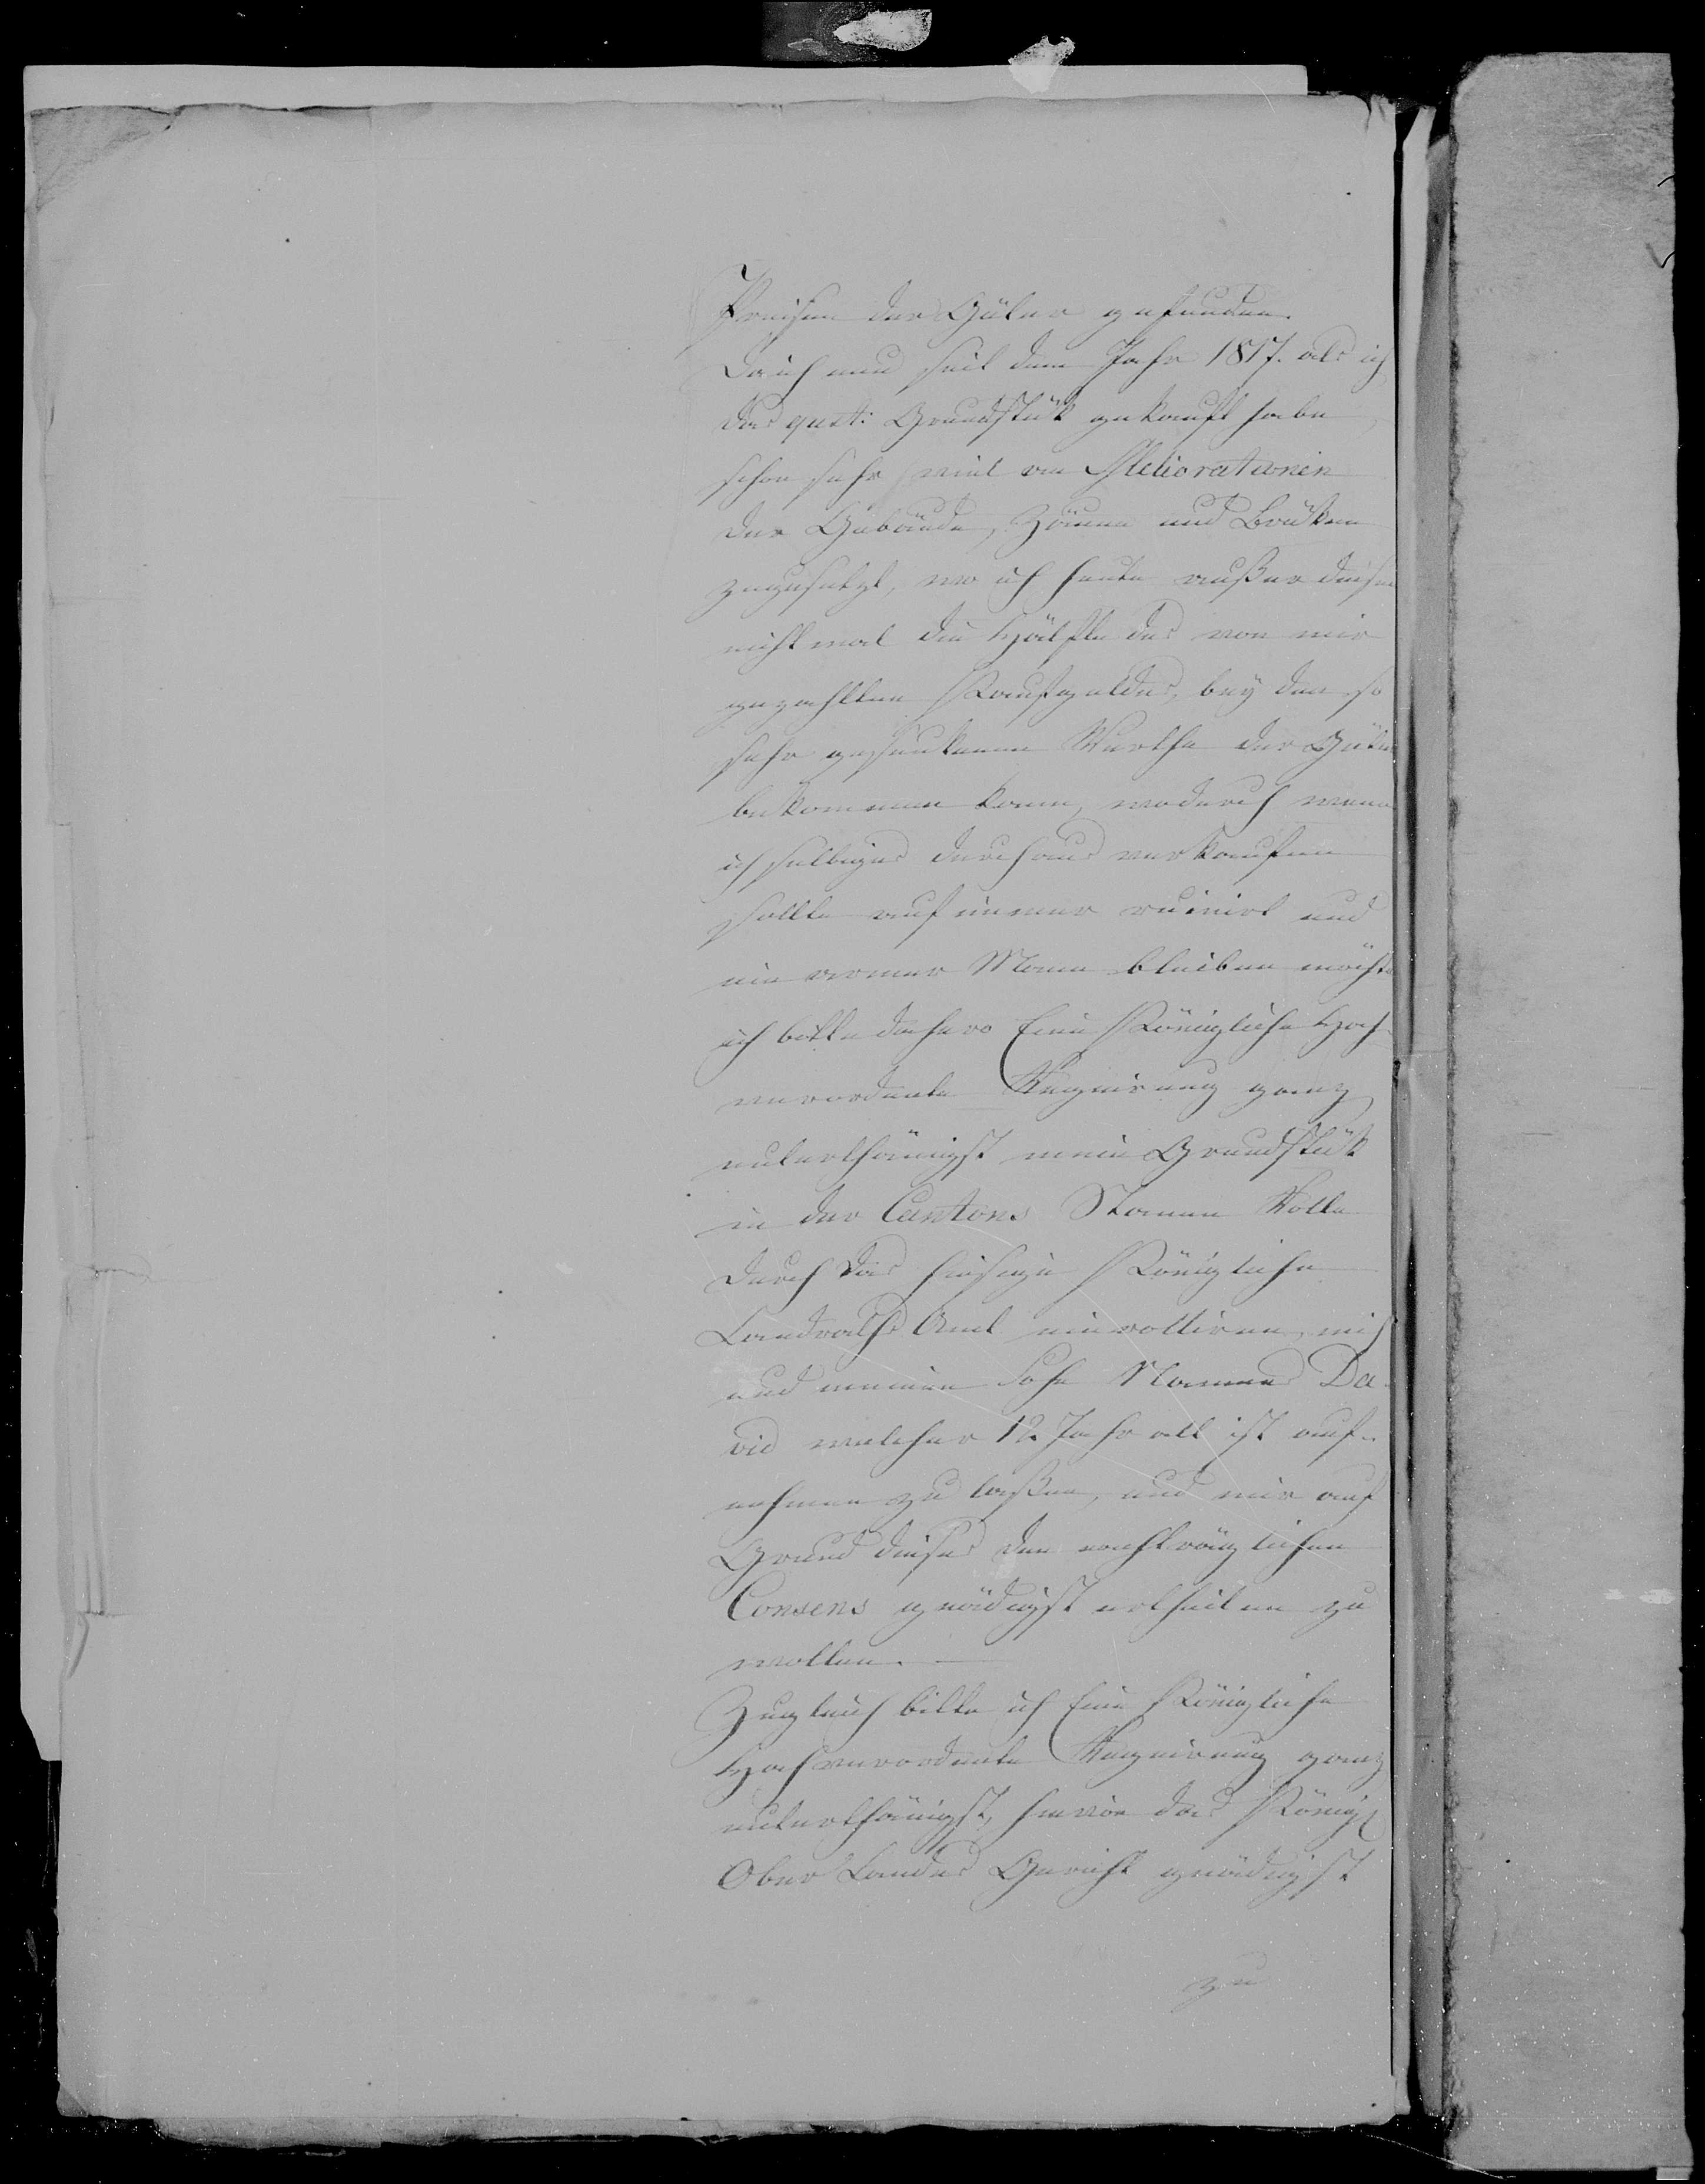 Preisen der Güter gefunden.
Da ich nun seit dem Jahr 1817. als ich
das quest: Grundstük gekauft habe,
schon sehr viel an Meliorationen
der Gebäude, Zäune und Brüken
zugesetzt, wo ich heute außer diesem
nicht mal die Hälfte des von mir
gezahlten Kaufgeldes, bey den so
sehr gesunkenen Werthe der Güter
bekommen kann, wodurch wenn
ich selbiges durchaus verkaufen
sollte auf immer ruinirt und
ein armer Mann bleiben möchte
ich bitte dahero Eine Königliche Hoch
verordente Regierung ganz
unterthänigst mein Grundstük
in der Cantons Stamm Rolle
durch das hiesige Königliche
Landraths Amt einrolliren, mich
und meinen Sohn Namens Da-
vid welcher 12 Jahr alt ist auf-
nehmen zu laßen, und mir auf
Grund dieses den nachträglichen
Consens gnädigst ertheilen zu
wollen. —
Zugleich bitte ich Eine Königliche
Hochverordente Regierung ganz
unterthänigst, hievon das Königl
Ober Landes Gericht gnädigst
zu